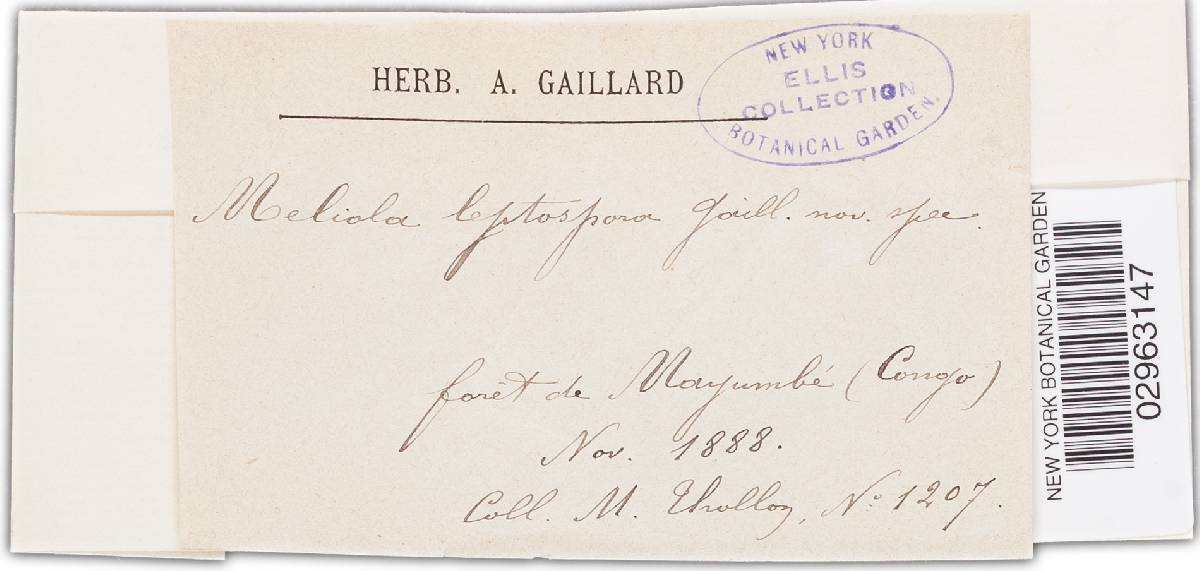 HERB. A. GAILLARD
NEW YORK
ELLIS
COLLECTION
BOTANICAL GARDEN.
Meliola leptospora Gaill. nov. spec.
forêt de Mayumbé (Congo)
Nov. 1888.
Coll. M. Thollon, No. 1207.
NEW YORK BOTANICAL GARDEN
02963147